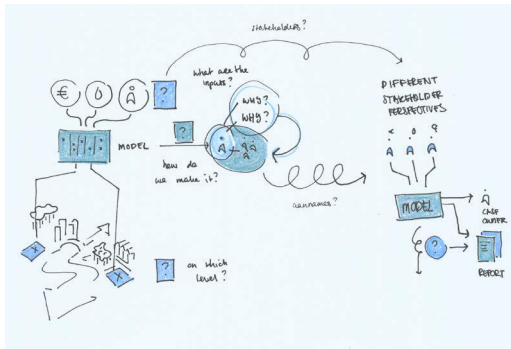 stakeholders?
what are the
inputs?
€
?
WHY?
WHY?
?
MODEL
how do
we make it?
DIFFERENT
STAKEHOLDER
PERSPECTIVES
aannames?
MODEL
CASE
OWNER
?
?
REPORT
X
X
?
on which
level?